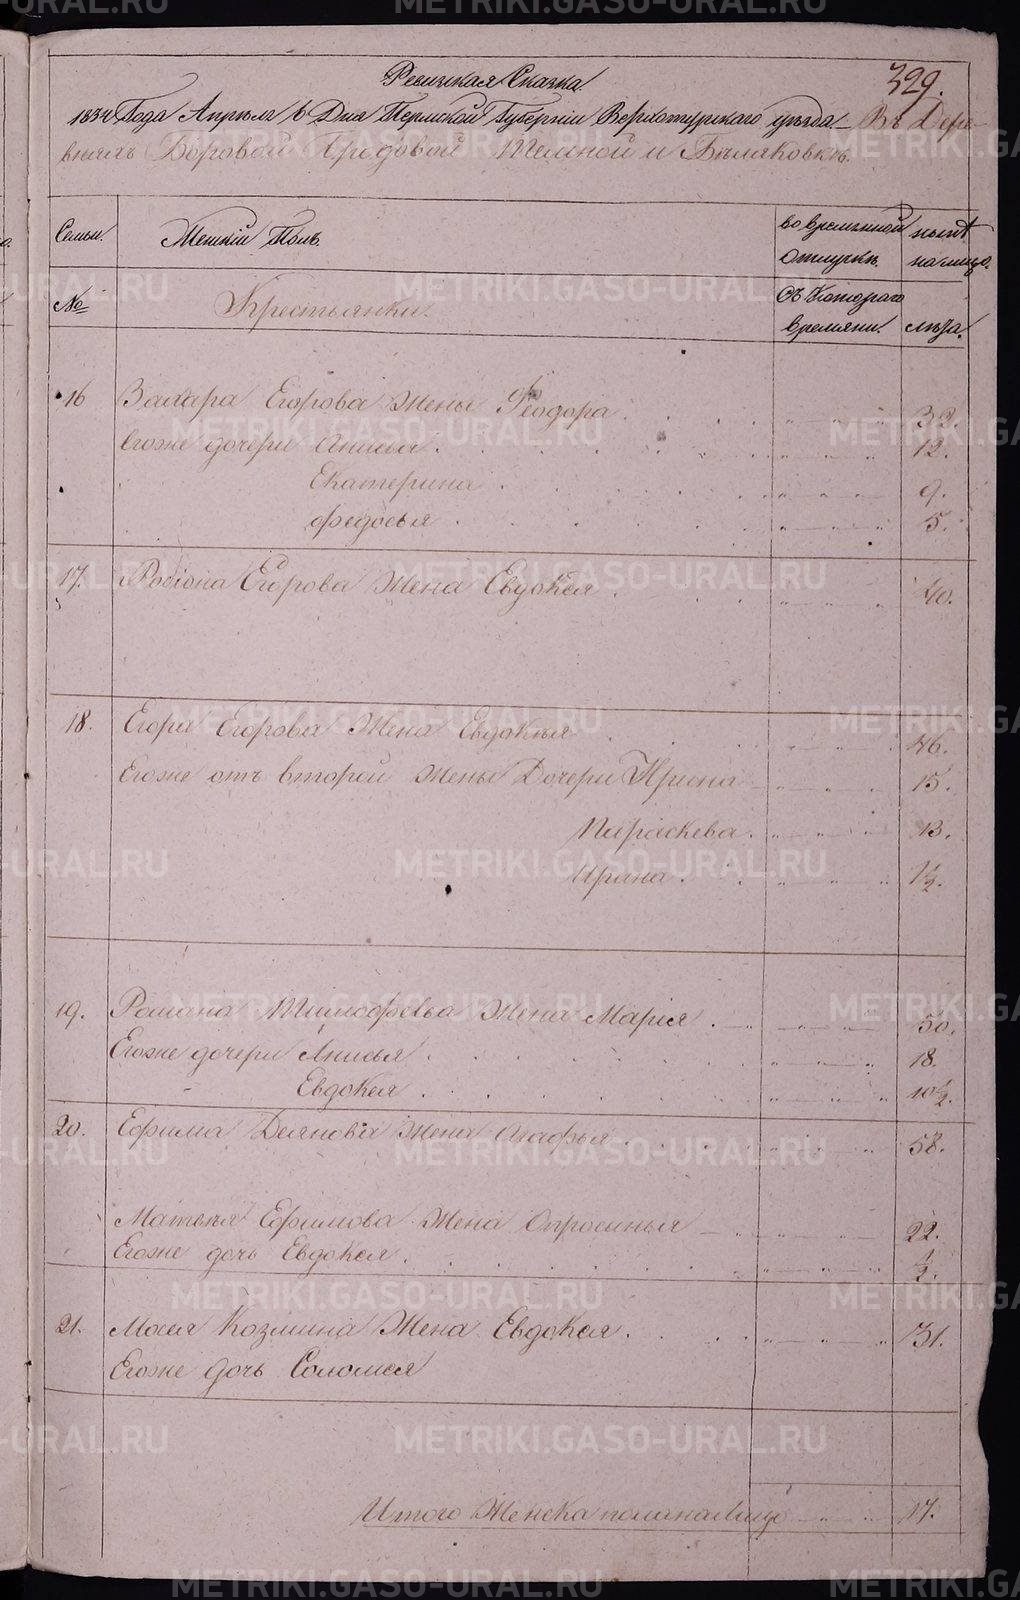 329.
Ревизская Сказка.
1834 Года Апреля 6 Дня Пермской Губернии Верхотурского уезда. Въ Дерев-
няхъ Боровой Темной и Беляковке.
Семьи. Женскій Полъ. во временной отлучке. ныне на лицо.
№ Крестьянки. Съ котораго времяни. лета.
16 Захара Егорова Жены Феодора 32.
Егоже дочери Анисья 12.
Екатерина 9.
Федосья 5.
17. Родіона Егорова Жена Евдокея 40.
18. Егора Егорова Жена Евдокея 46.
Егоже отъ второй жены Дочери Ирина 15.
Параскева 13.
Ирина 1½.
19. Романа Тимофеева Жена Марія 50.
Егоже дочери Анисья 18.
Евдокея 10½.
20. Ефима Демянова Жена Агафья 58.
Матвея Ефимова Жена Опросинья 22.
Егоже дочь Евдокея ½.
21. Мосея Козмина Жена Евдокея 31.
Егоже дочь Соломея
Итого Женска пола налицо 17.
METRIKI.GASO-URAL.RU